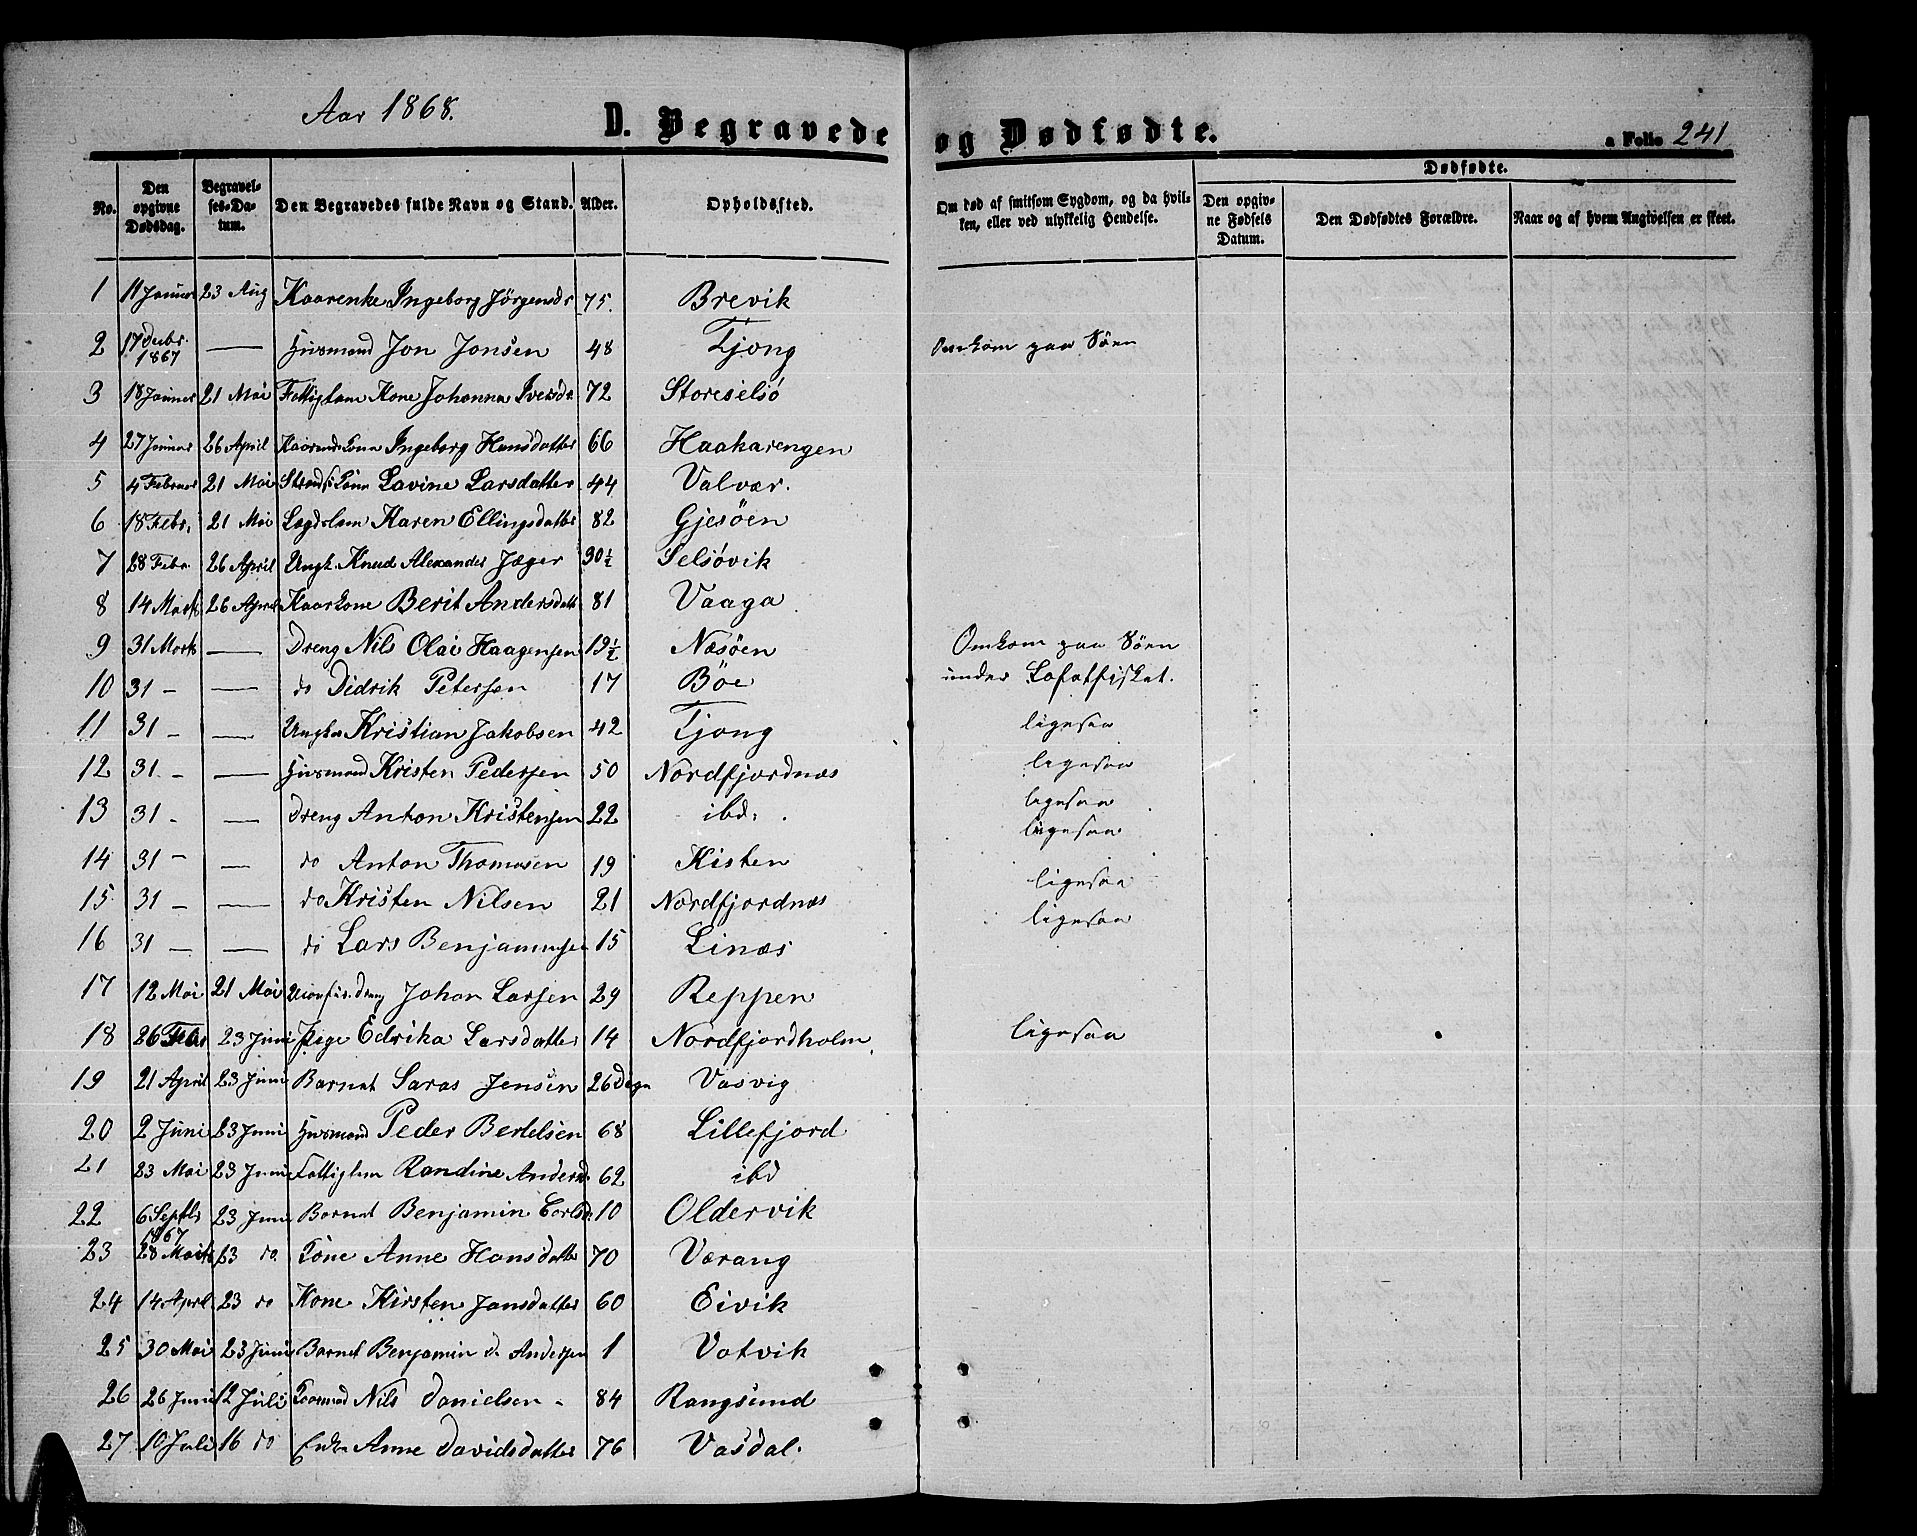 Aar 1868.
D. Begravede og Dødfødte.
a Folio 241
No. | Den opgivne Dødsdag. | Begravelses-Datum. | Den Begravedes fulde Navn og Stand. | Alder. | Opholdssted. | Om død af smitsom Sygdom, og da hvilken, eller ved ulykkelig Hendelse. | Dødfødte. | Den opgivne Fødsels Datum. | Den Dødfødtes Forældre. | Naar og af hvem Angivelsen er skeet.
1 11 Januar 23 Aug Kaarenke Ingeborg Jörgensdr 75. Brevik
2 17 Decbr. 1867 — Husmand Jon Jonsen 48 Tjong Omkom paa Söen
3 18 Januar 21 Mai Fattiglem Kone Johanna Iversdr 72 Storeselsö
4 27 Januar 26 April Kaarmds Kone Ingeborg Hansdatter 66 Haakarengen
5 4 Februar 21 Mai Lovine Larsdatter 44 Valvær.
6 18 Febr. 21 Mai Lægdslem Karen Ellingsdatter 82 Gjesöen
7 28 Febr. 26 April Ungk. Knud Alexander Jæger 30½ Selsövik
8 14 Marts 26 April Kaarkone Berit Andersdatt 81 Vaaga
9 31 Marts — Dreng Nils Olai Haagensen 19½ Næsöen Omkom paa Söen
10 31 - — do Didrik Petersen 17 Böe under Lofotfisket.
11 31 - — Ungkar Kristian Jakobsen 42 Tjong ligesaa
12 31 - — Husmand Kristen Pedersen 50 Nordfjordnæs ligesaa
13 31 - — Dreng Anton Kristensen 22 ibd. ligesaa
ligesaa
14 31 - — do Anton Thomasen 19 Kisten
15 31 - — do Kristen Nilsen 21 Nordfjordnæs ligesaa
16 31 - — do Lars Benjaminsen 15 Linæs ligesaa
17 12 Mai 21 Mai Dreng Johan Larsen 29 Reppen
18 26 Febr 23 Juni Pige Edrika Larsdatter 14 Nordfjordholm ligesaa
19 21 April 23 Juni Barnet Saras Jensen 26 Dage Vasvig
20 2 Juni 23 Juni Husmand Peder Bertelsen 68 Lillefjord
21 23 Mai 23 Juni Fattiglem Randine Andersd. 62 ibd
22 6 Septb 1867 23 Juni Barnet Benjamin 10 Oldervik
23 28 Marts 23 do. Kone Anne Hansdatter 70 Værang
24 14 April 23 do Kone Kirsten Jansdatter 60 Eivik
25 30 Mai 23 Juni Barnet Benjamin Andersen 1 Vatvik
26 26 Juni 12 Juli Kaarmand Nils Danielsen - 84 Rangsund
27 10 Juli 16 do Enke Anne Davidsdatter 76 Vasdal.